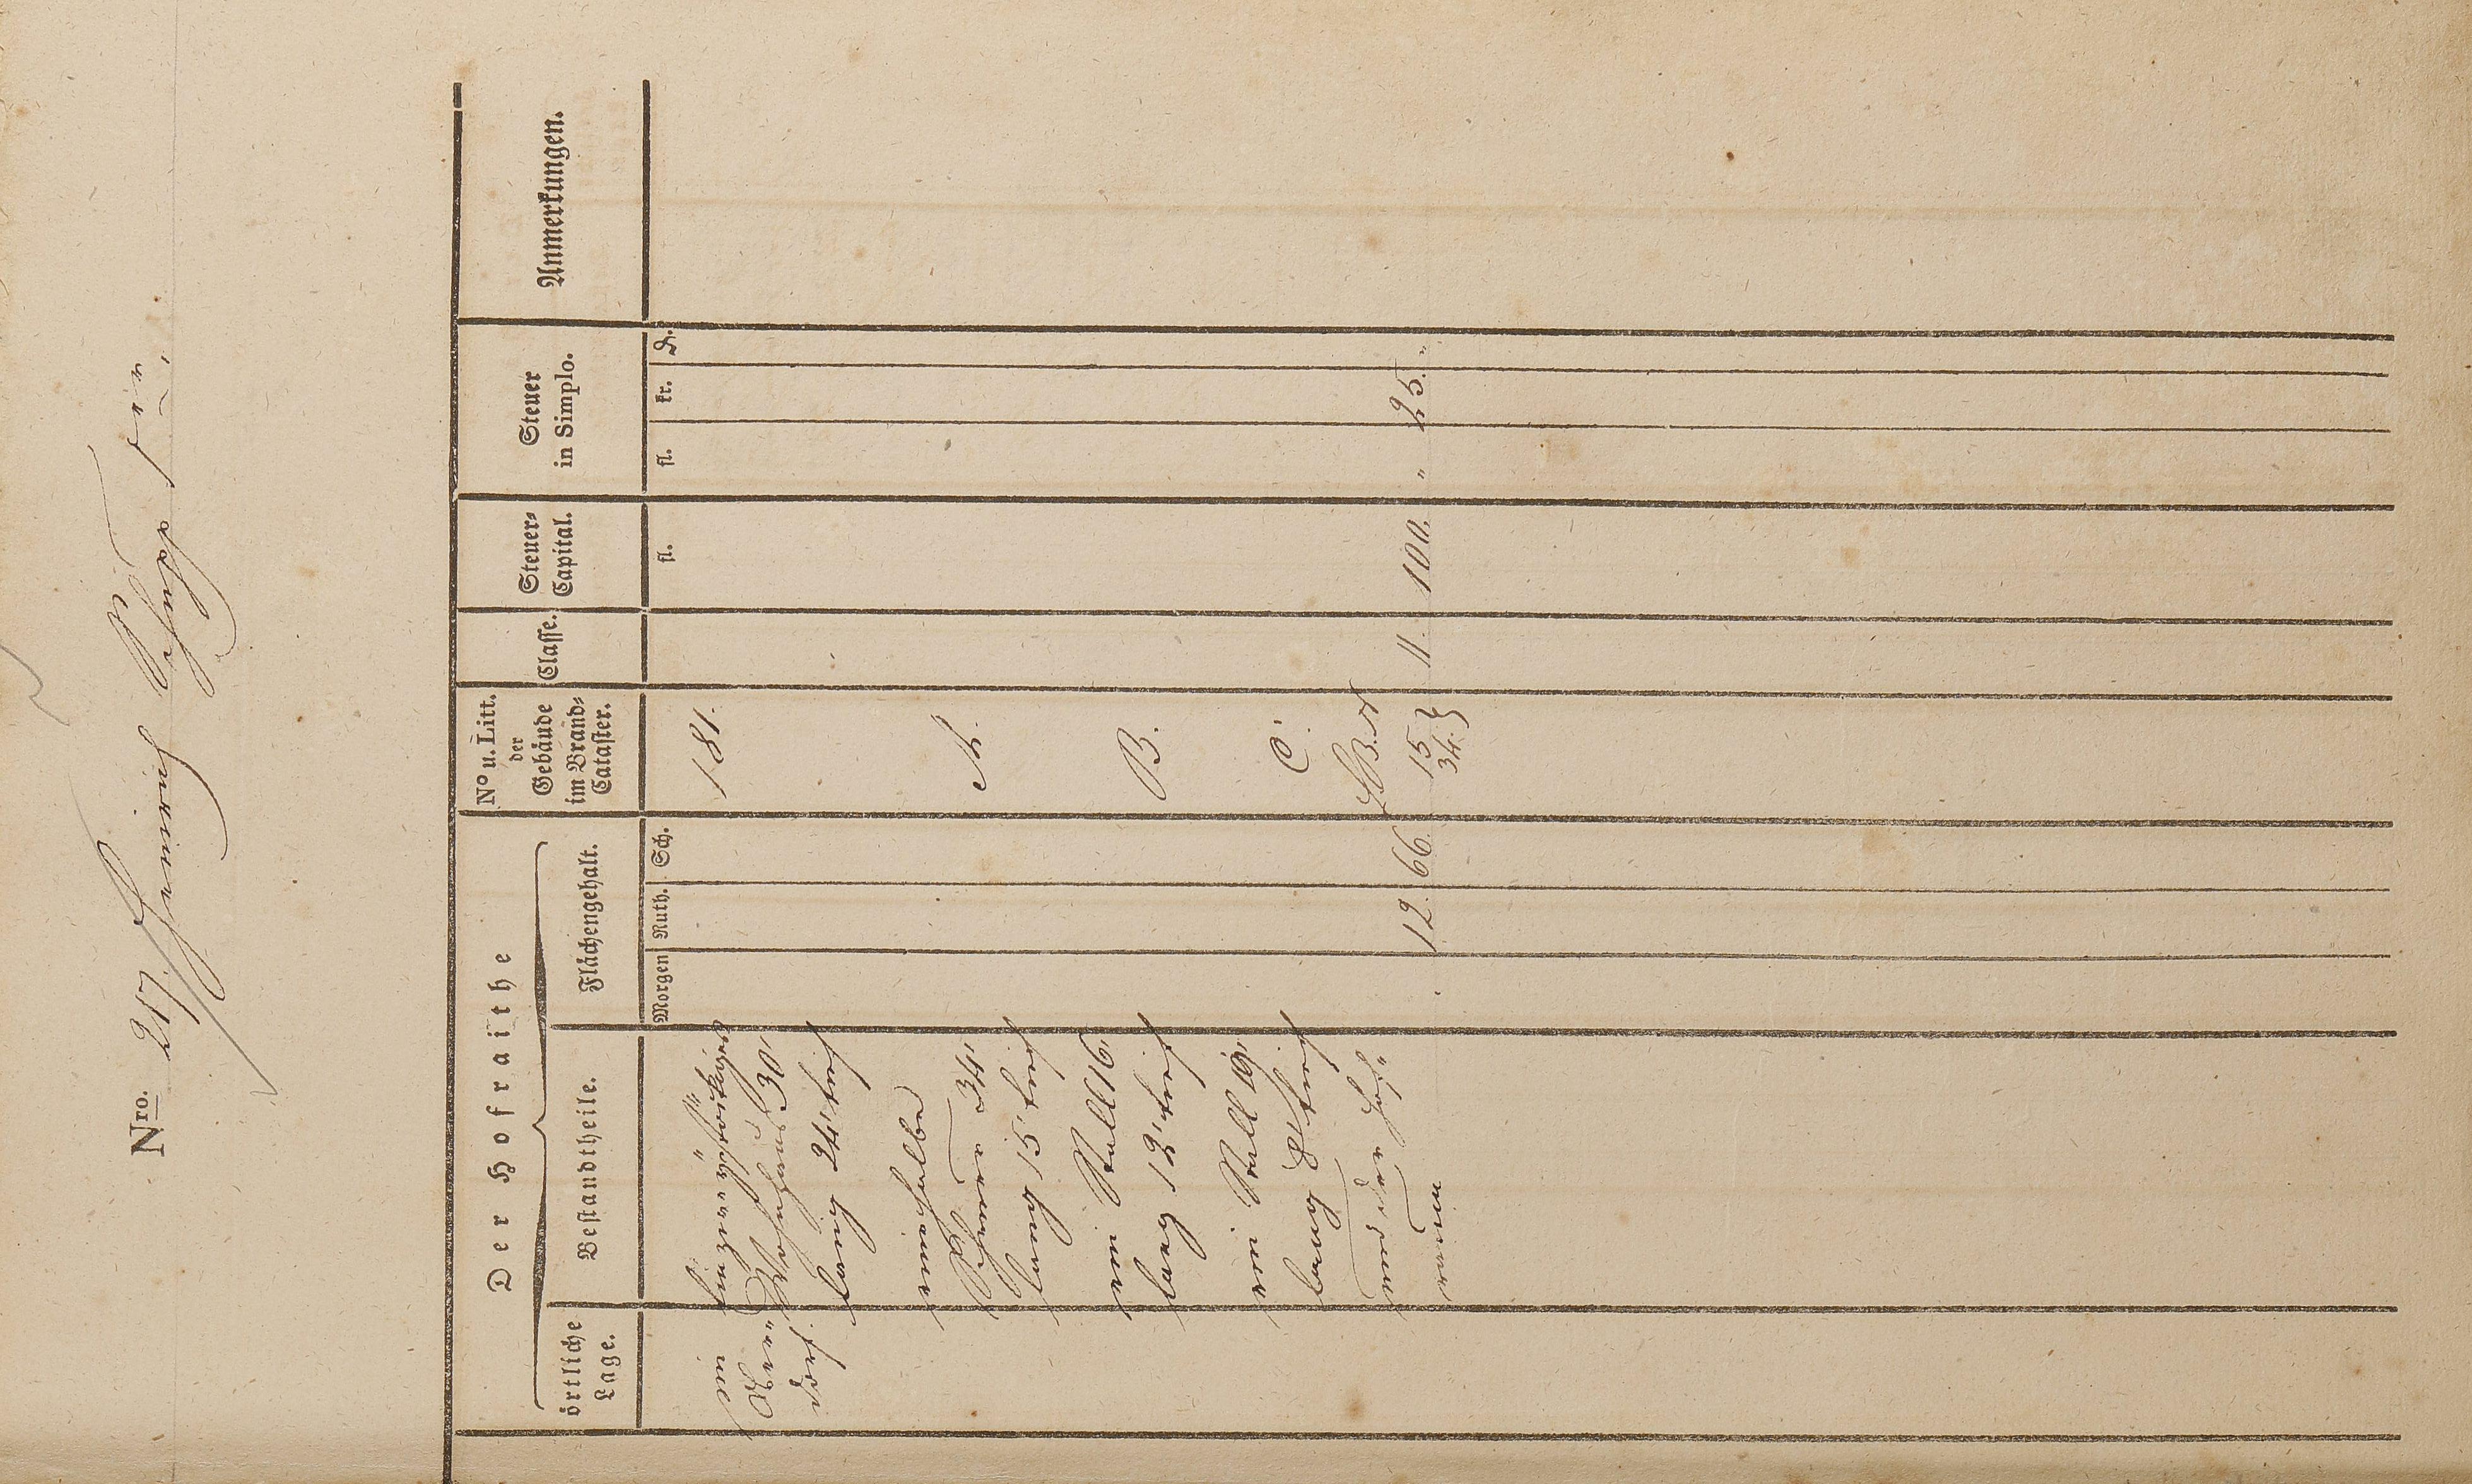 Nro. 217. Heinrich
Der Hofraithe
örtliche
Lage.
Bestandtheile.
Flächengehalt.
Morgen Ruth. Sch.
N° u. Litt.
der
Gebäude
im Brand-
Cataster.
Classe.
Steuer-
Capital.
fl.
Steuer
in Simplo.
fl. kr. D.
Anmerkungen.
im
ein zweystöckiges
181.
Wohnhaus 30'
lang 24' tief
eine halbe
A.
Scheuer 34'
lang 15' tief
ein Stall 16'
B.
lang 12' tief
ein Stall 19'
C.
lang 8' tief
und der Hof-
raum
12. 66.
15
34.
11. 100. " 25. "